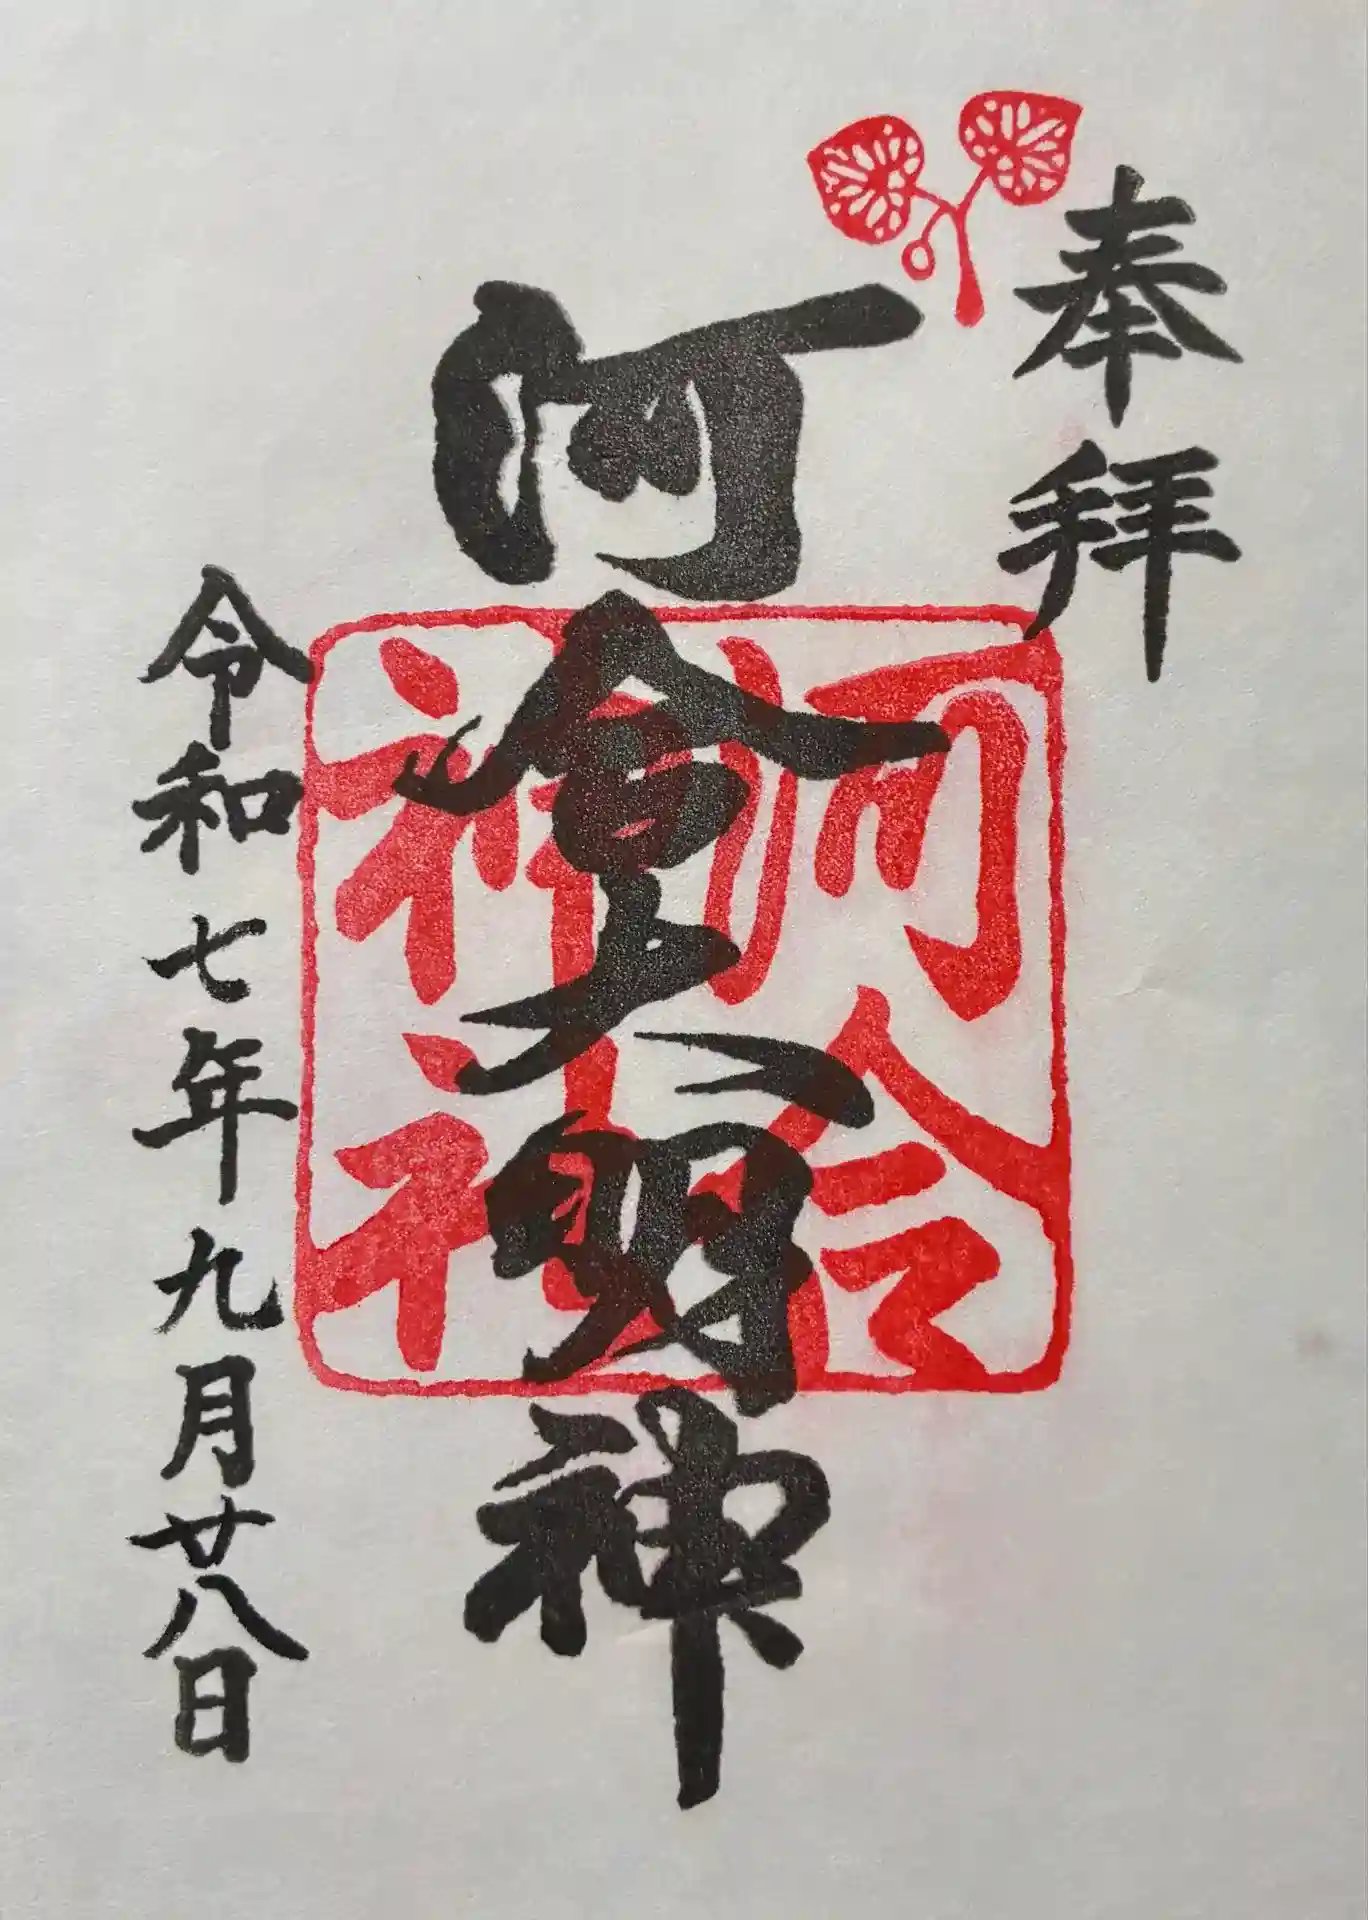 奉拝
河會大明神
河合
神社
令和七年九月廿八日